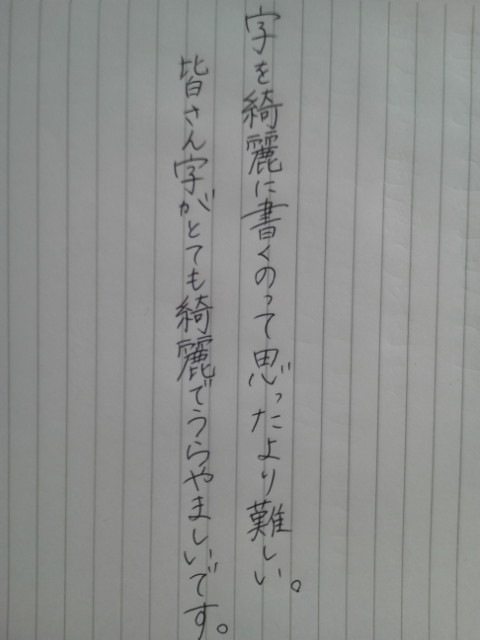 字を綺麗に書くのって思ったより難しい。
皆さん字がとても綺麗でうらやましいです。